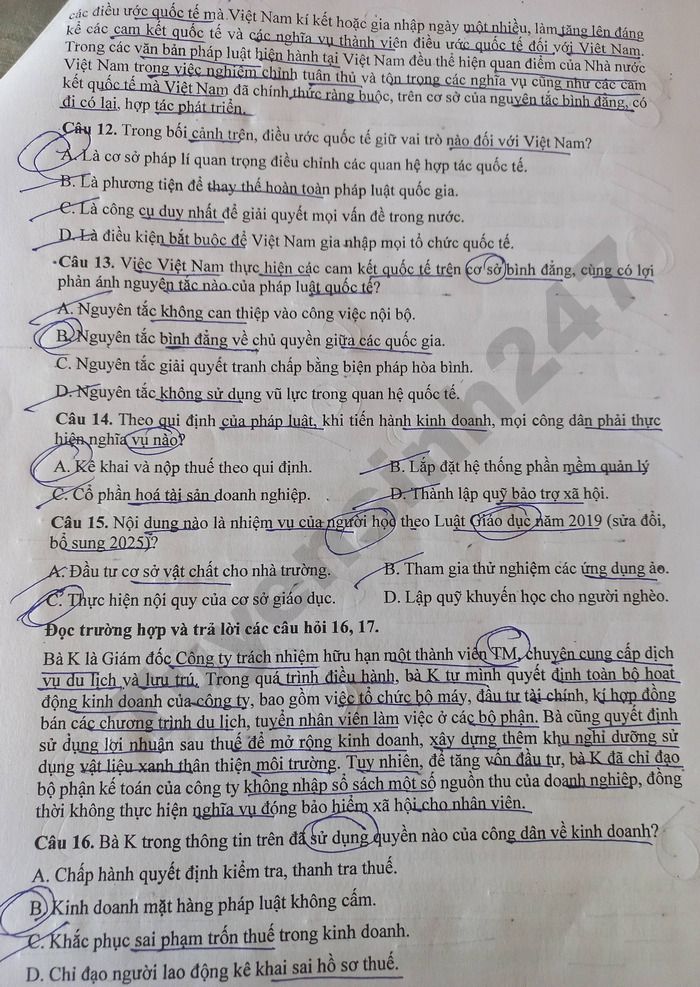 các điều ước quốc tế mà Việt Nam kí kết hoặc gia nhập ngày một nhiều, làm tăng lên đáng
kể các cam kết quốc tế và các nghĩa vụ thành viên điều ước quốc tế đối với Việt Nam.
Trong các văn bản pháp luật hiện hành tại Việt Nam đều thể hiện quan điểm của Nhà nước
Việt Nam trong việc nghiêm chỉnh tuân thủ và tôn trọng các nghĩa vụ cũng như các cam
kết quốc tế mà Việt Nam đã chính thức ràng buộc, trên cơ sở của nguyên tắc bình đẳng, có
đi có lại, hợp tác phát triển.
Câu 12. Trong bối cảnh trên, điều ước quốc tế giữ vai trò nào đối với Việt Nam?
A. Là cơ sở pháp lí quan trọng điều chỉnh các quan hệ hợp tác quốc tế.
B. Là phương tiện để thay thế hoàn toàn pháp luật quốc gia.
C. Là công cụ duy nhất để giải quyết mọi vấn đề trong nước.
D. Là điều kiện bắt buộc để Việt Nam gia nhập mọi tổ chức quốc tế.
Câu 13. Việc Việt Nam thực hiện các cam kết quốc tế trên cơ sở bình đẳng, cùng có lợi
phản ánh nguyên tắc nào của pháp luật quốc tế?
A. Nguyên tắc không can thiệp vào công việc nội bộ.
B. Nguyên tắc bình đẳng về chủ quyền giữa các quốc gia.
C. Nguyên tắc giải quyết tranh chấp bằng biện pháp hòa bình.
D. Nguyên tắc không sử dụng vũ lực trong quan hệ quốc tế.
Câu 14. Theo qui định của pháp luật, khi tiến hành kinh doanh, mọi công dân phải thực
hiện nghĩa vụ nào?
A. Kê khai và nộp thuế theo qui định. B. Lắp đặt hệ thống phần mềm quản lý
C. Cổ phần hoá tài sản doanh nghiệp. D. Thành lập quỹ bảo trợ xã hội.
Câu 15. Nội dung nào là nhiệm vụ của người học theo Luật Giáo dục năm 2019 (sửa đổi,
bổ sung 2025)?
A. Đầu tư cơ sở vật chất cho nhà trường. B. Tham gia thử nghiệm các ứng dụng ảo.
C. Thực hiện nội quy của cơ sở giáo dục. D. Lập quỹ khuyến học cho người nghèo.
Đọc trường hợp và trả lời các câu hỏi 16, 17.
Bà K là Giám đốc Công ty trách nhiệm hữu hạn một thành viên TM, chuyên cung cấp dịch
vụ du lịch và lưu trú. Trong quá trình điều hành, bà K tự mình quyết định toàn bộ hoạt
động kinh doanh của công ty, bao gồm việc tổ chức bộ máy, đầu tư tài chính, kí hợp đồng
bán các chương trình du lịch, tuyển nhân viên làm việc ở các bộ phận. Bà cũng quyết định
sử dụng lợi nhuận sau thuế để mở rộng kinh doanh, xây dựng thêm khu nghỉ dưỡng sử
dụng vật liệu xanh thân thiện môi trường. Tuy nhiên, để tăng vốn đầu tư, bà K đã chỉ đạo
bộ phận kế toán của công ty không nhập sổ sách một số nguồn thu của doanh nghiệp, đồng
thời không thực hiện nghĩa vụ đóng bảo hiểm xã hội cho nhân viên.
Câu 16. Bà K trong thông tin trên đã sử dụng quyền nào của công dân về kinh doanh?
A. Chấp hành quyết định kiểm tra, thanh tra thuế.
B. Kinh doanh mặt hàng pháp luật không cấm.
C. Khắc phục sai phạm trốn thuế trong kinh doanh.
D. Chỉ đạo người lao động kê khai sai hồ sơ thuế.